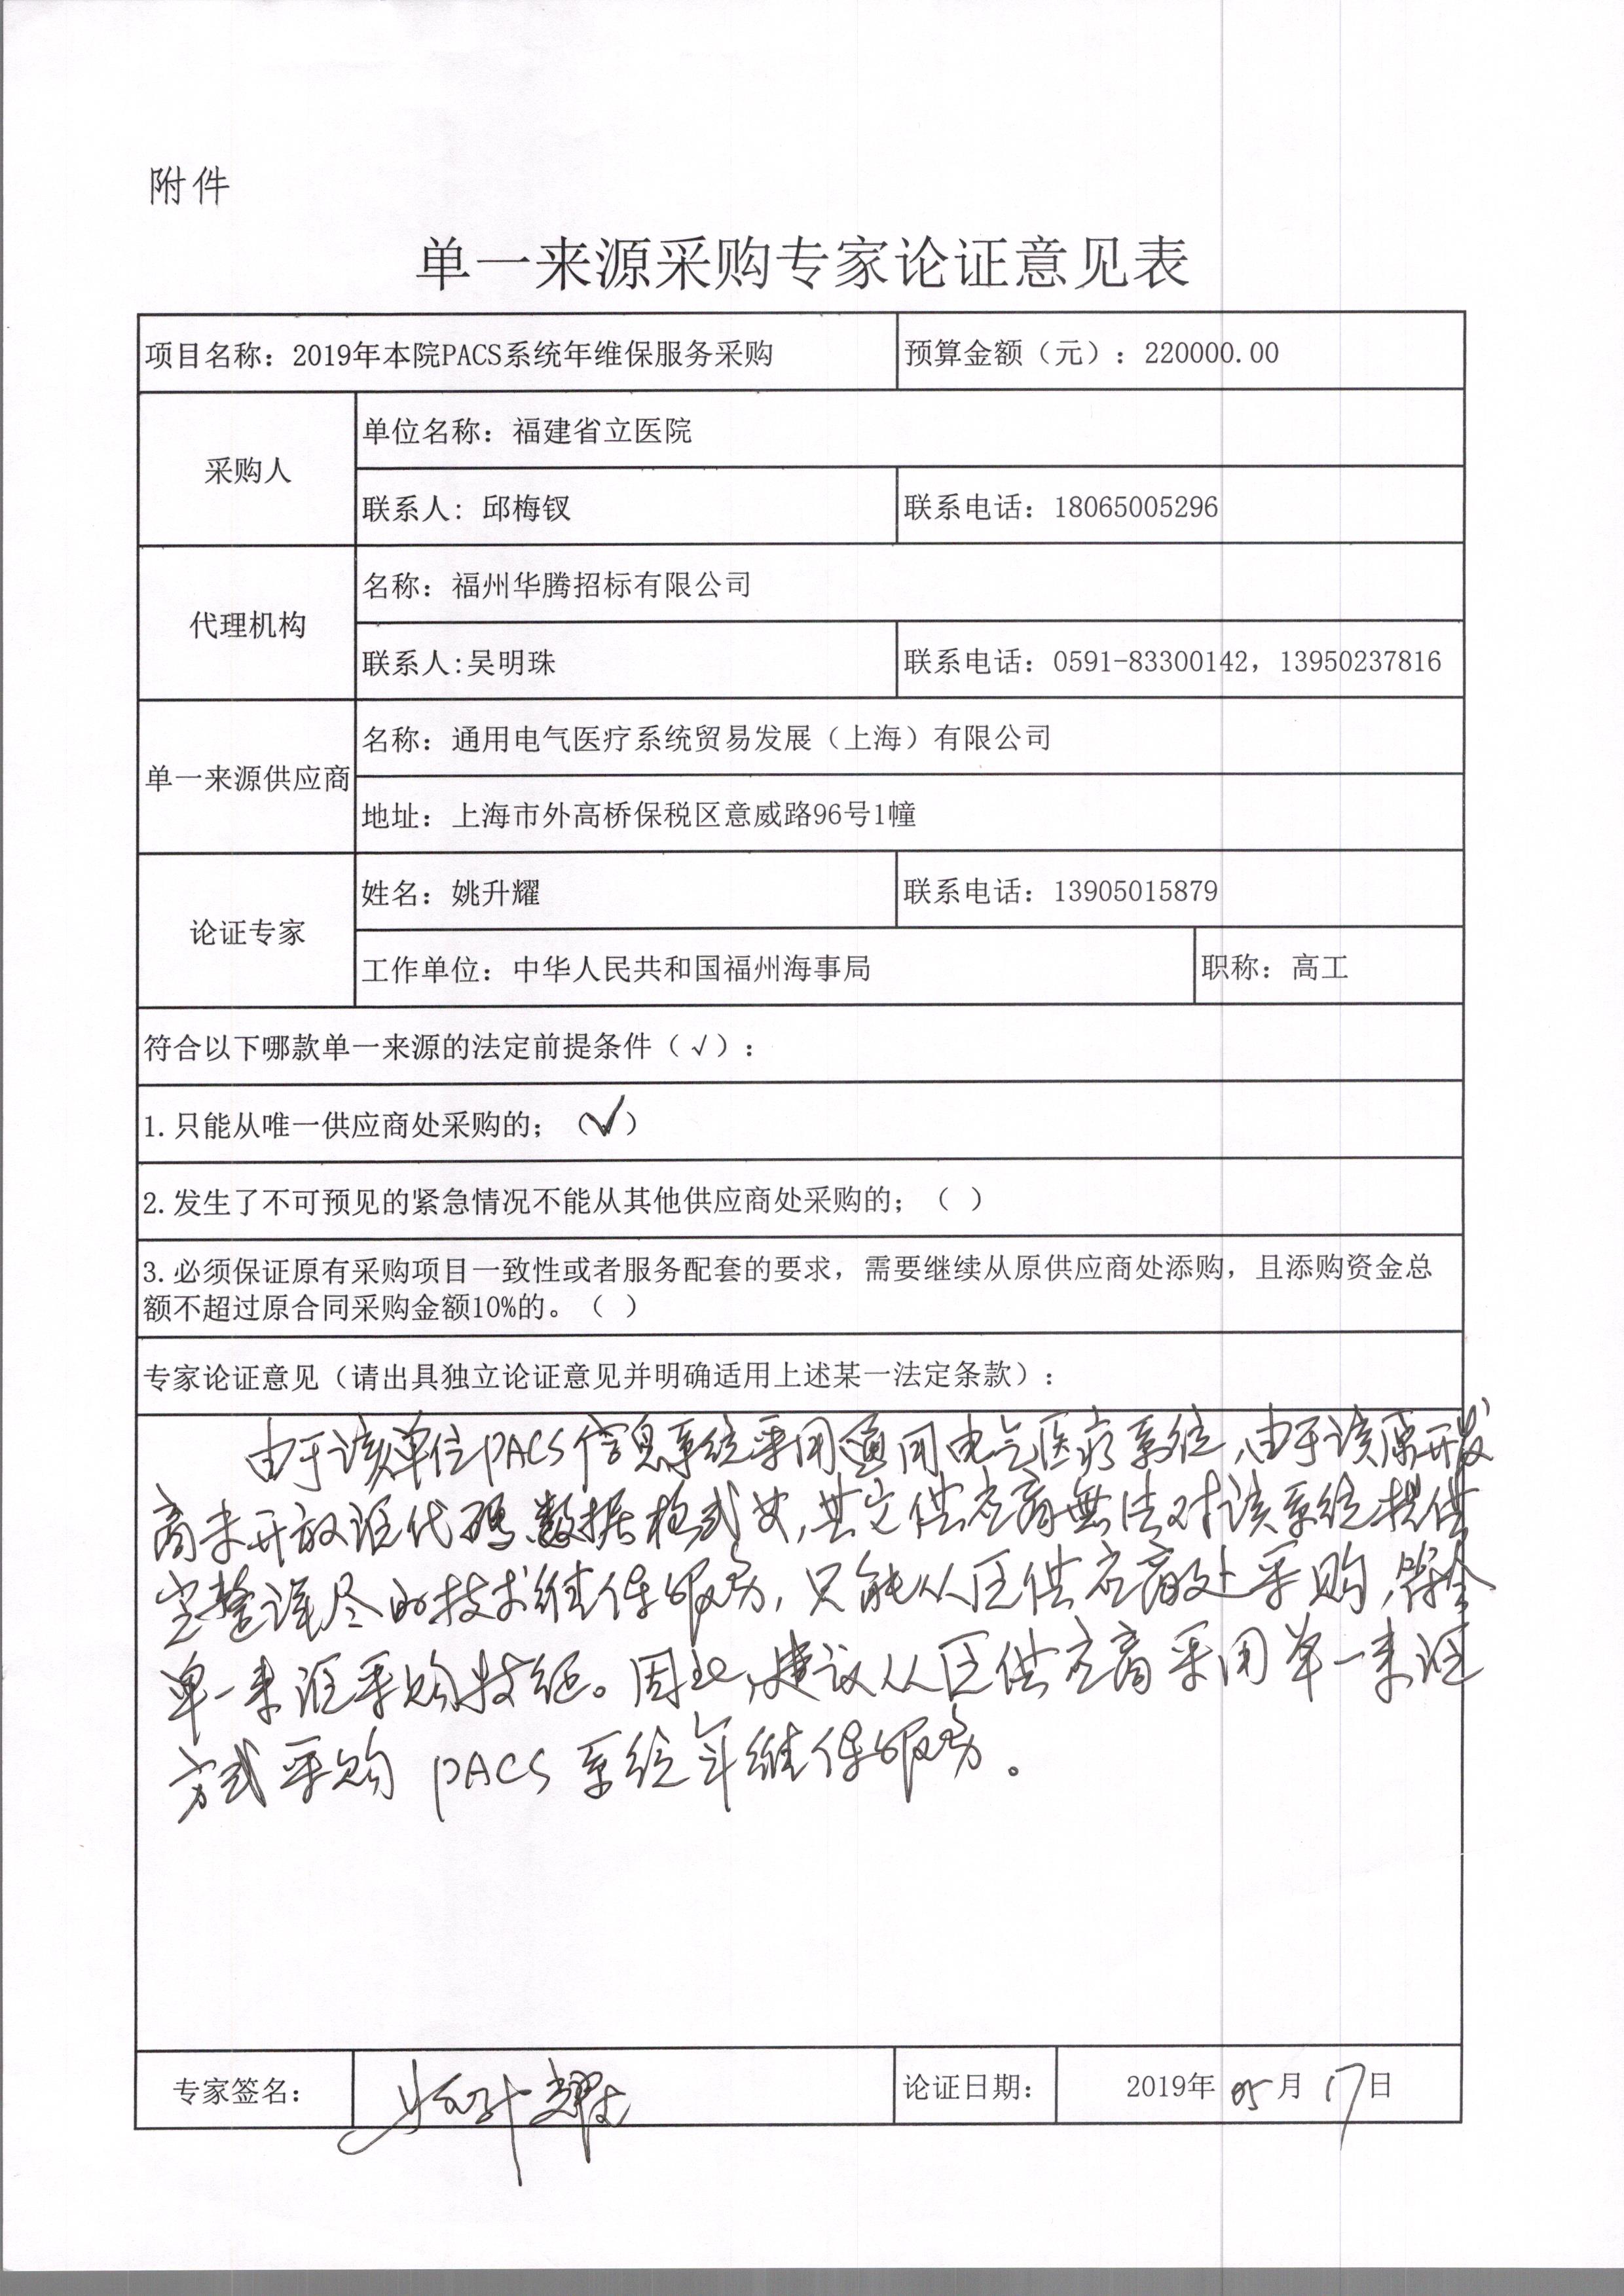 附件
单一来源采购专家论证意见表
项目名称：2019年本院PACS系统年维保服务采购
预算金额（元）：220000.00
采购人
单位名称：福建省立医院
联系人：邱梅钗
联系电话：18065005296
代理机构
名称：福州华腾招标有限公司
联系人:吴明珠
联系电话：0591-83300142，13950237816
单一来源供应商
名称：通用电气医疗系统贸易发展（上海）有限公司
地址：上海市外高桥保税区意威路96号1幢
论证专家
姓名：姚升耀
联系电话：13905015879
工作单位：中华人民共和国福州海事局
职称：高工
符合以下哪款单一来源的法定前提条件（√）：
1.只能从唯一供应商处采购的；（✓）
2.发生了不可预见的紧急情况不能从其他供应商处采购的；（ ）
3.必须保证原有采购项目一致性或者服务配套的要求，需要继续从原供应商处添购，且添购资金总
额不超过原合同采购金额10%的。（ ）
专家论证意见（请出具独立论证意见并明确适用上述某一法定条款）：
由于该单位PACS信息系统采用通用电气医疗系统，由于该原开发
商未开放源代码数据格式，其它供应商無法对该系统提供
完整详尽的技术维保服务，只能从供应商处采购，符合
单一来源采购。因此，建议从供应商采用单一来源
方式采购PACS系统年维保服务。
专家签名：
姚升耀
论证日期：
2019年05月17日